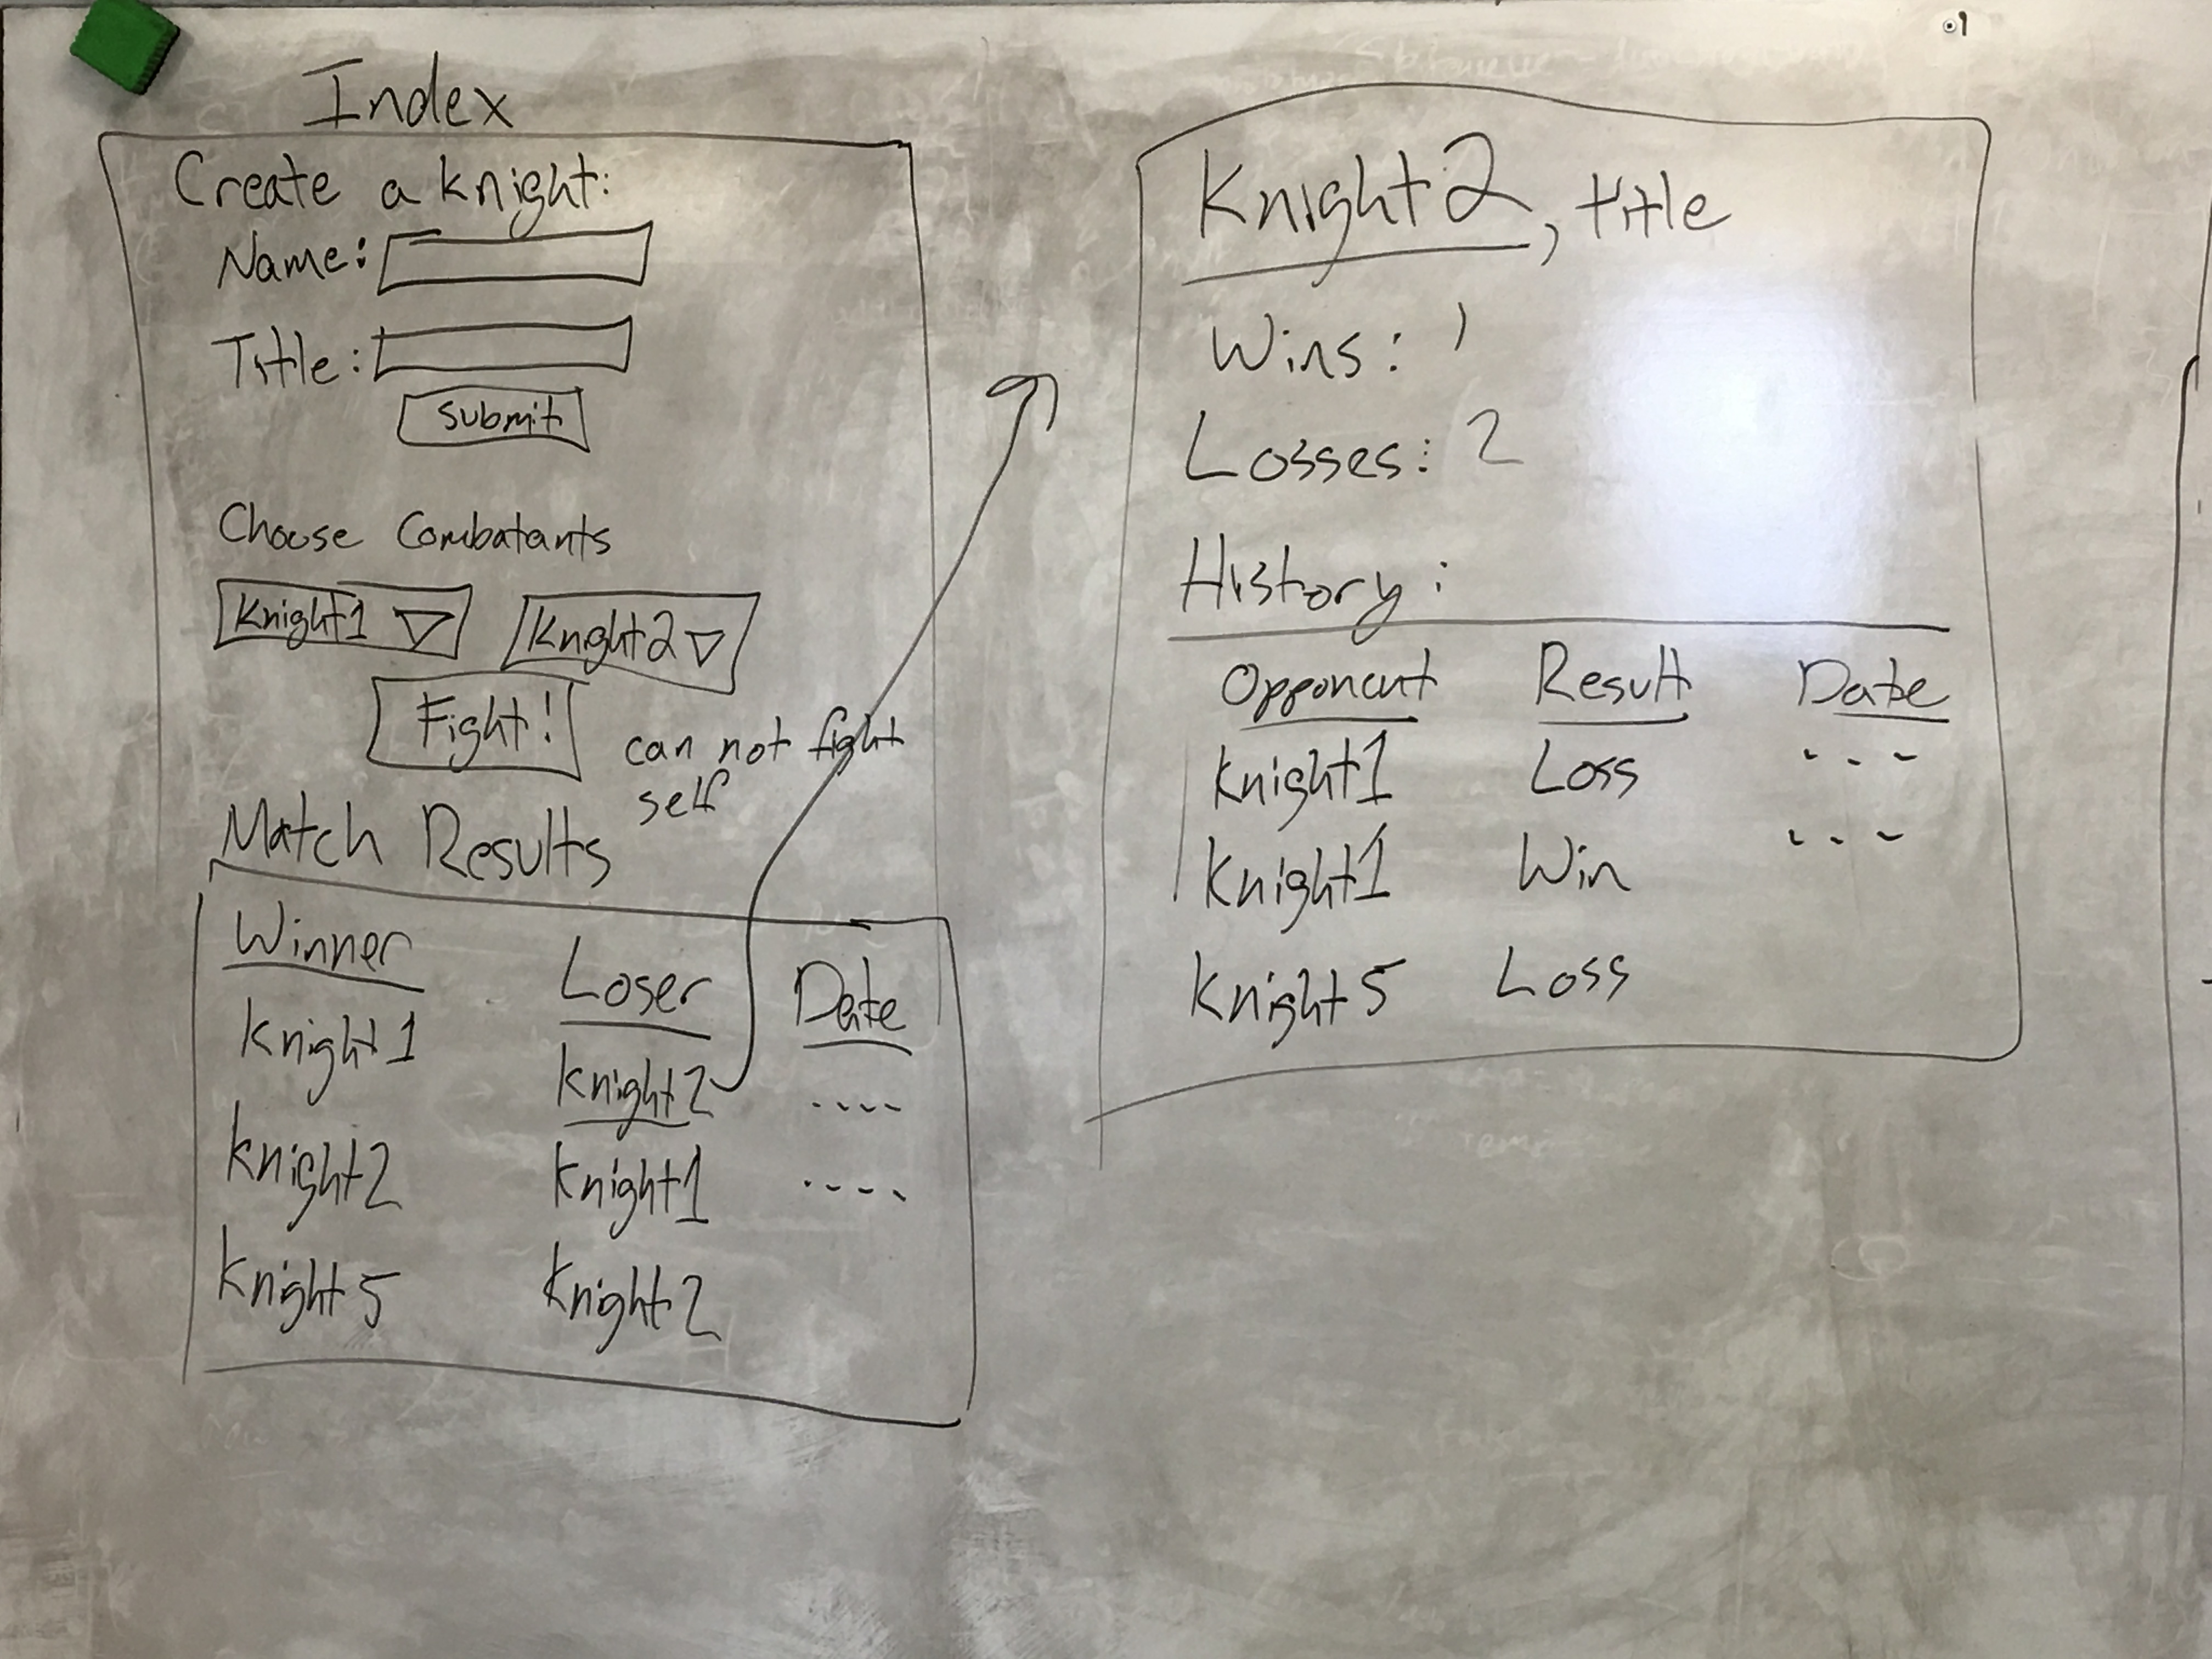 Index
Create a knight:
Name:
Title:
Submit
Choose Combatants
Knight1
Knght2
Fight!
can not fight
self
Match Results
Winner Loser Date
Knight1 Knight2 ....
Knight2 Knight1 ....
Knight5 Knight2
Knight2, title
Wins: 1
Losses: 2
History:
Opponent Result Date
Knight1 Loss ...
Knight1 Win ...
Knight5 Loss